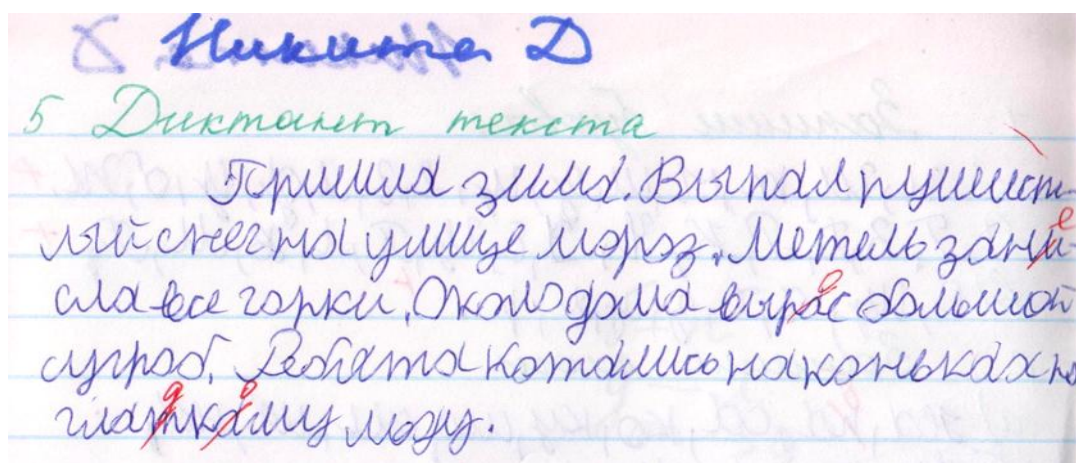 Никита Д
5 Диктант текста
Пришла зима. Выпал пушист-
лый снег на улице мороз. Метель зани-
сла все горки. Около дома вырас большой
сугроб. Ребята катались на коньках по
глаткаму льду.